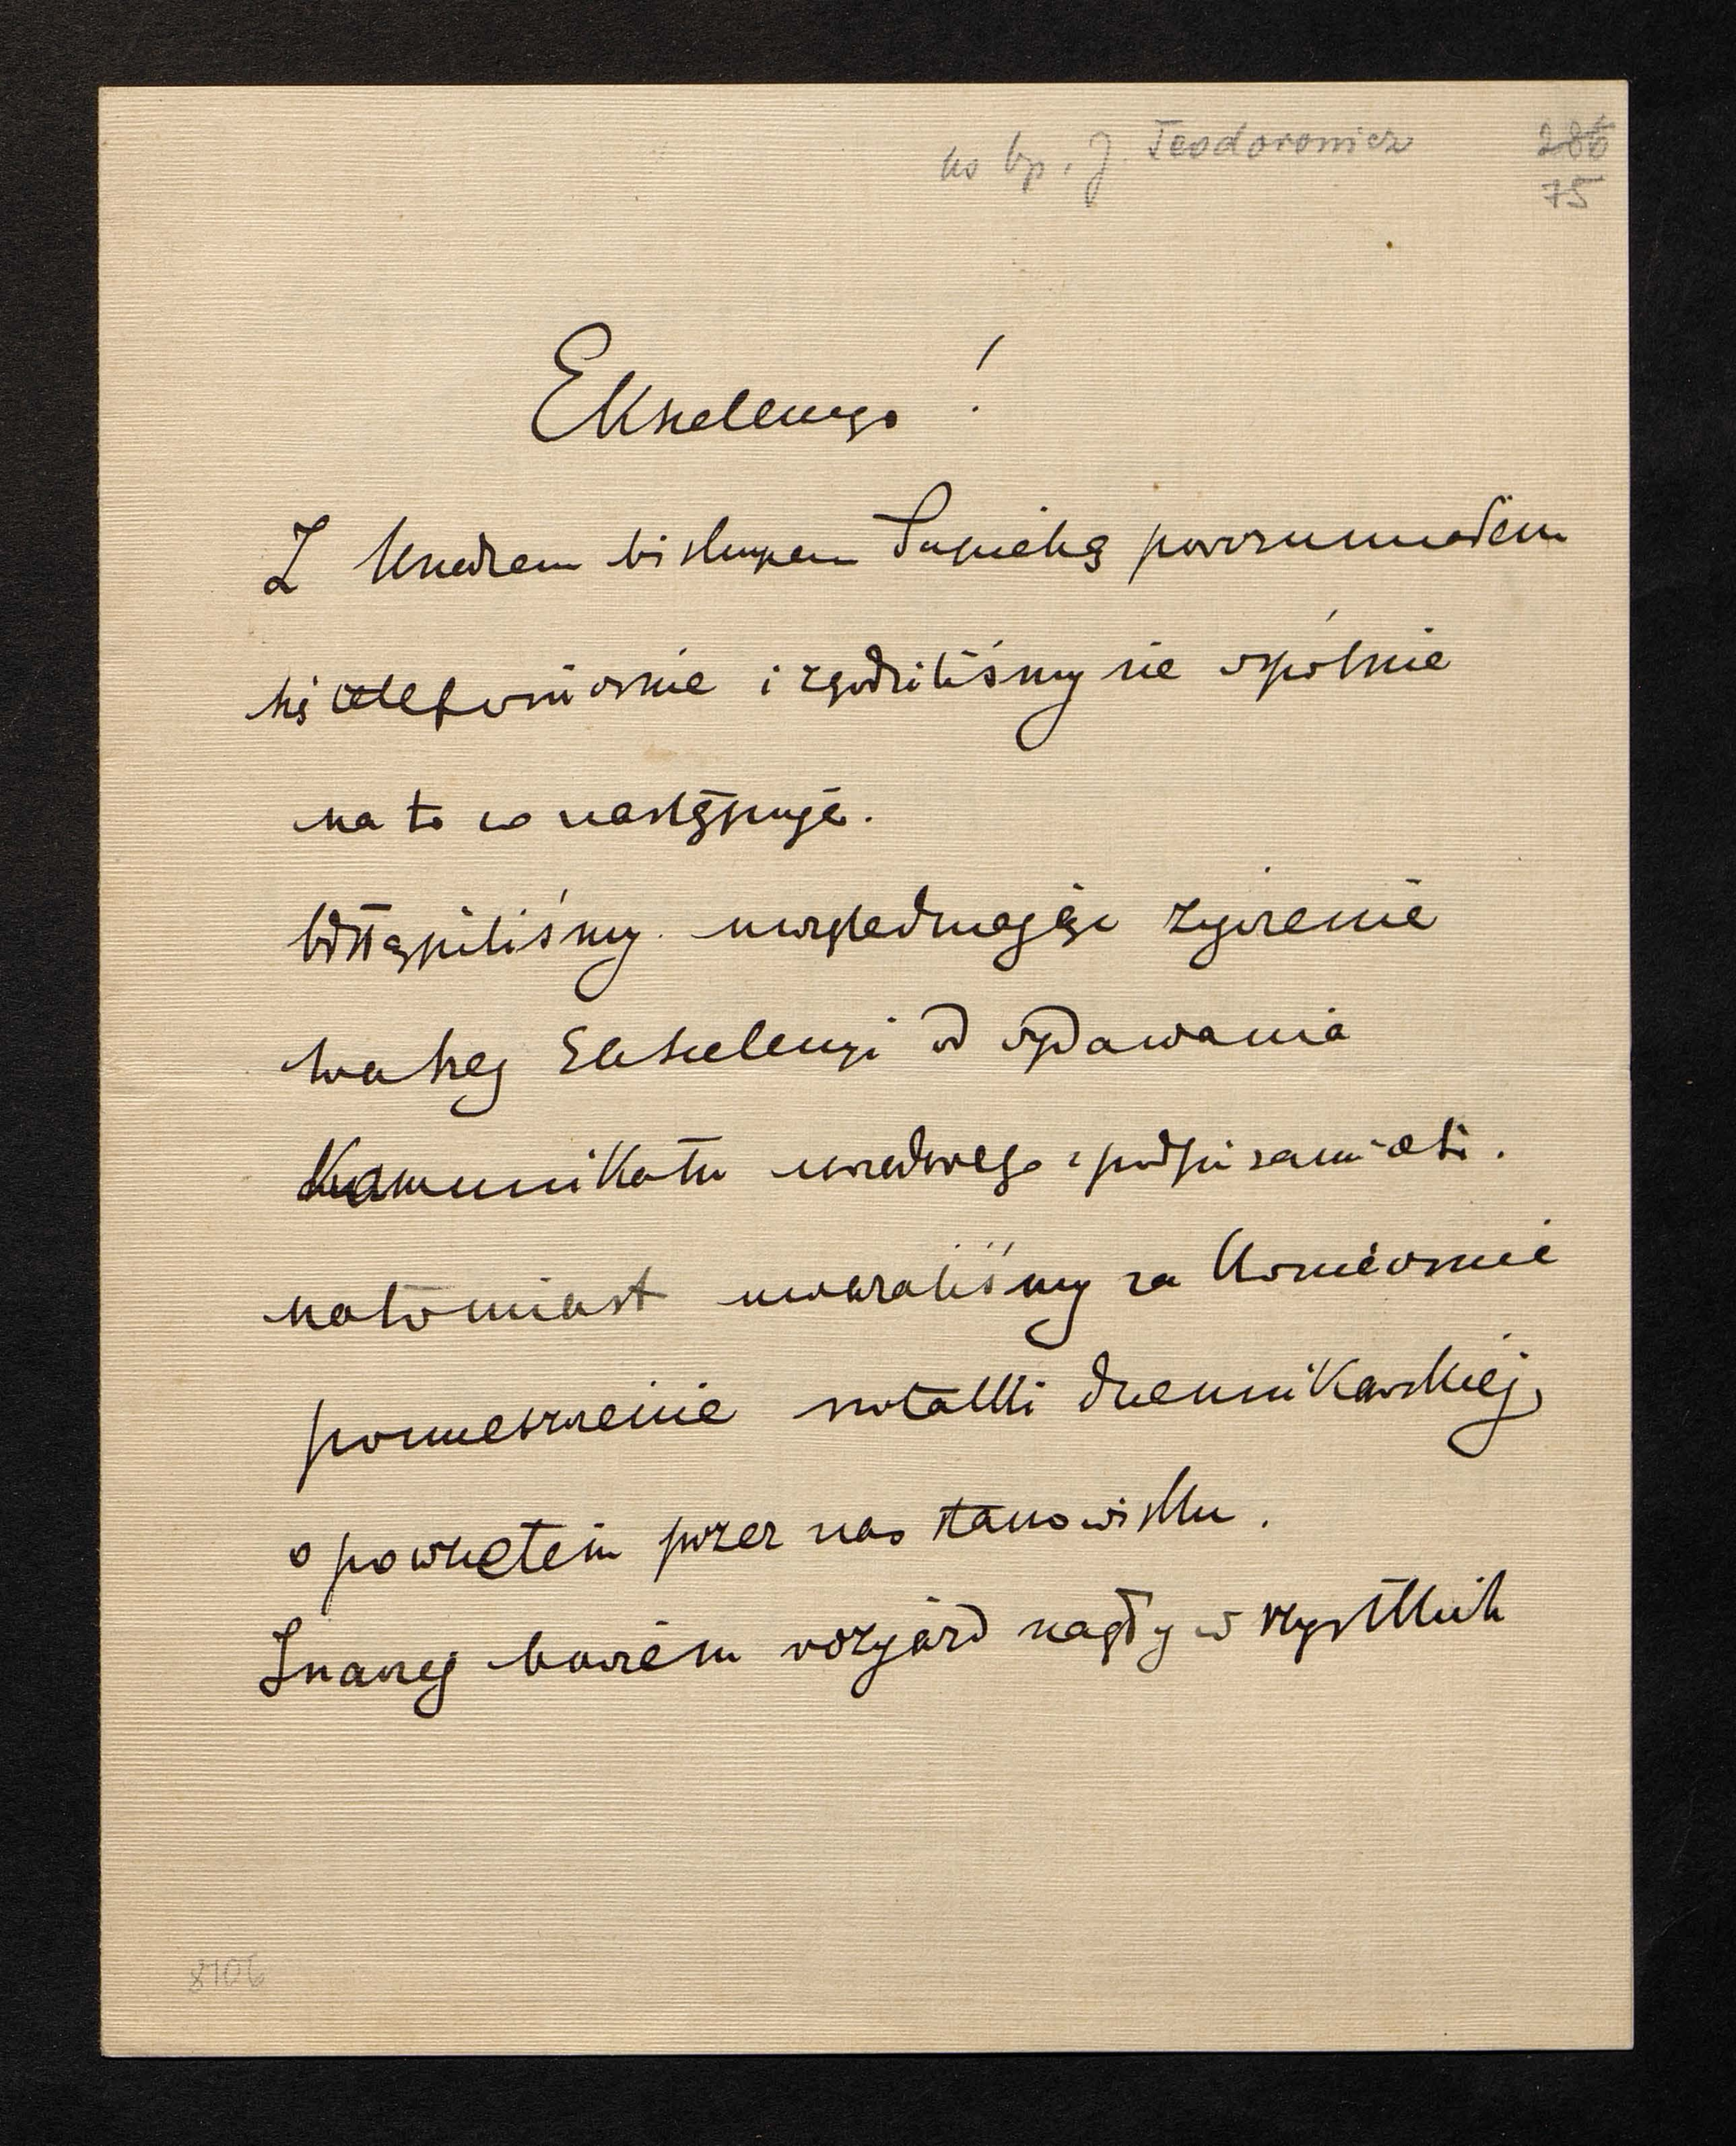 ks bp. J. Teodorowicz
286
75
Ekscelencjo!
Z księdzem biskupem Sapiehą porozumiałem
się telefonicznie i zgodziliśmy się wspólnie
na to co następuje.
Odstąpiliśmy uwzględniając życzenie
waszej Ekscelencji od wydawania
Komunikatu urzędowego z podpisami etc.
natomiast uważaliśmy za konieczne
pomieszczenie notatki dziennikarskiej,
o powziętem przez nas stanowisku.
Inaczej bowiem rozjazd nagły wszystkich
8106